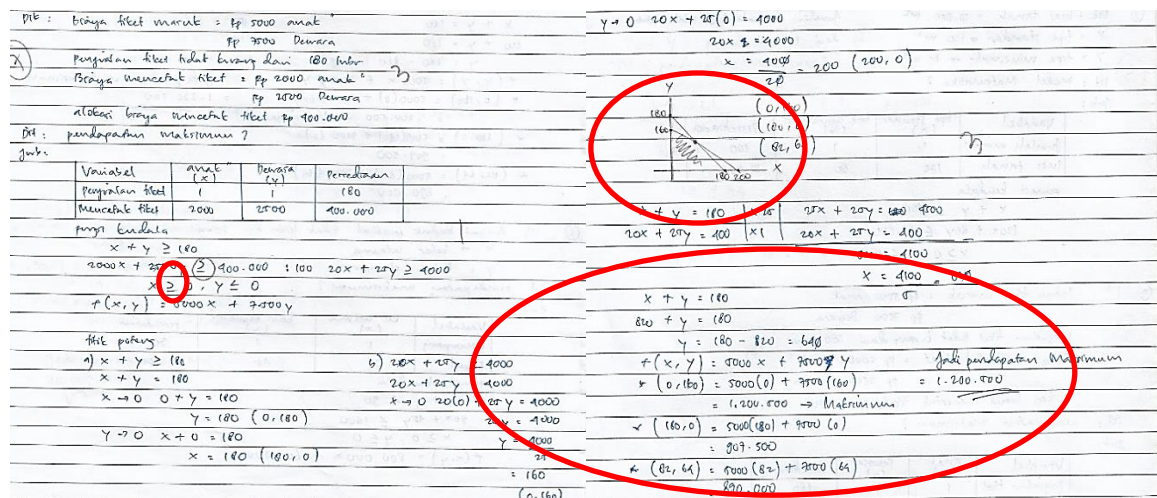 Dit : biaya tiket masuk = Rp 5000 anak"
Rp 7500 Dewasa
penjualan tiket tidak kurang dari 180 lmbr
Biaya mencetak tiket = Rp 2000 anak"
= Rp 2500 Dewasa
alokasi biaya mencetak tiket Rp 400.000
Dit : pendapatan maksimum ?
Jwb :
Variabel anak" (x) Dewasa (y) Persediaan
Penjualan tiket 1 180
Mencetak tiket 2000 2500 400.000
fungsi kendala
x + y ≥ 180
2000x + ≥ 400.000 : 100 20x + 25y ≥ 4000
x ≥ 0, y ≤ 0
f(x, y) = 5000x + 7500y
titik potong
a) x + y ≥ 180
x + y = 180
x → 0 0 + y = 180
y = 180 (0, 180)
y → 0 x + 0 = 180
x = 180 (180, 0)
b) 20x + 25y = 4000
20x + 25y 4000
x → 0 20(0) + 25y = 4000
25y = 4000
y = 4000
25
= 160
(0, 160)
y → 0 20x + 25(0) = 4000
20x = 4000
x = 4000 = 200 (200, 0)
20
Y
180
160
180 200 X
(0, 160)
(180, 0)
(82, 64)
x + y = 180 | x 25 | 25x + 25y = 4500
20x + 25y = 400 | x 1 | 20x + 25y = 400
= 4100
x = 4100 = 820
5
x + y = 180
820 + y = 180
y = 180 - 820 = 640
f(x, y) = 5000x + 7500 y Jadi pendapatan Maksimum
* (0, 160) = 5000(0) + 7500(160) = 1.200.500
= 1.200.500 → Maksimum
* (180, 0) = 5000(180) + 7500(0)
= 907.500
* (82, 64) = 5000(82) + 7500(64)
= 890.000